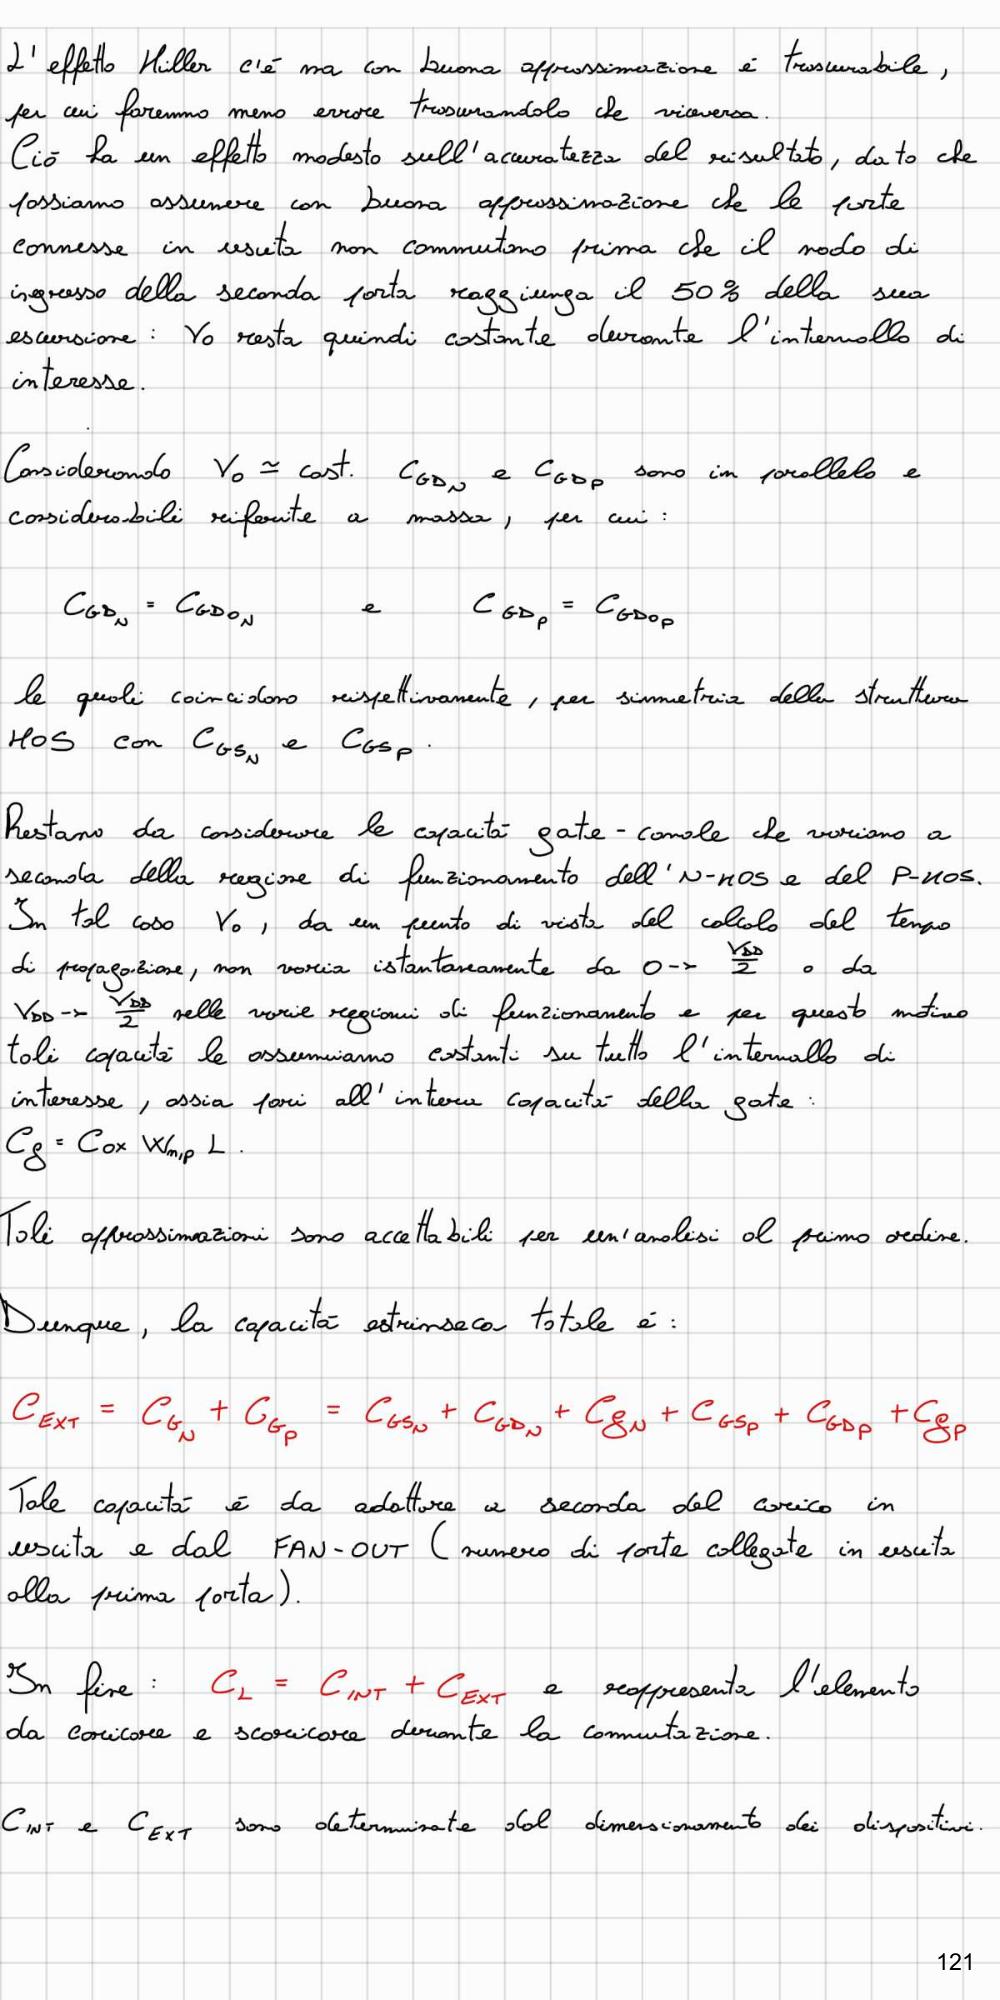 L'effetto Miller c'è ma con buona approssimazione è trascurabile,
per cui faremmo meno errore trascurandolo che viceversa.
Ciò ha un effetto modesto sull'accuratezza del risultato, dato che
possiamo assumere con buona approssimazione che le porte
connesse in uscita non commutano prima che il nodo di
ingresso della seconda porta raggiunga il 50% della sua
escursione: Vo resta quindi costante durante l'intervallo di
interesse.
Considerando Vo ≃ cost. C_GD_N e C_GD_P sono in parallelo e
considerabili riferite a massa, per cui:
C_GD_N = C_GDO_N e C_GD_P = C_GDO_P
le quali coincidono rispettivamente, per simmetria della struttura
MOS con C_GS_N e C_GS_P.
Restano da considerare le capacità gate-canale che variano a
seconda della regione di funzionamento dell'N-MOS e del P-MOS.
In tal caso Vo, da un punto di vista del calcolo del tempo
di propagazione, non varia istantaneamente da 0 -> V_DD/2 o da
V_DD -> V_DD/2 nelle varie regioni di funzionamento e per questo motivo
tali capacità le assumiamo costanti su tutto l'intervallo di
interesse, ossia pari all'intera capacità della gate:
Cg = Cox W_n,p L.
Tali approssimazioni sono accettabili per un'analisi al primo ordine.
Dunque, la capacità estrinseca totale è:
C_EXT = C_G_N + C_G_P = C_GS_N + C_GD_N + Cg_N + C_GS_P + C_GD_P + Cg_P
Tale capacità è da adattare a seconda del carico in
uscita e dal FAN-OUT (numero di porte collegate in uscita
alla prima porta).
In fine: C_L = C_INT + C_EXT e rappresenta l'elemento
da caricare e scaricare durante la commutazione.
C_INT e C_EXT sono determinate dal dimensionamento dei dispositivi.
121